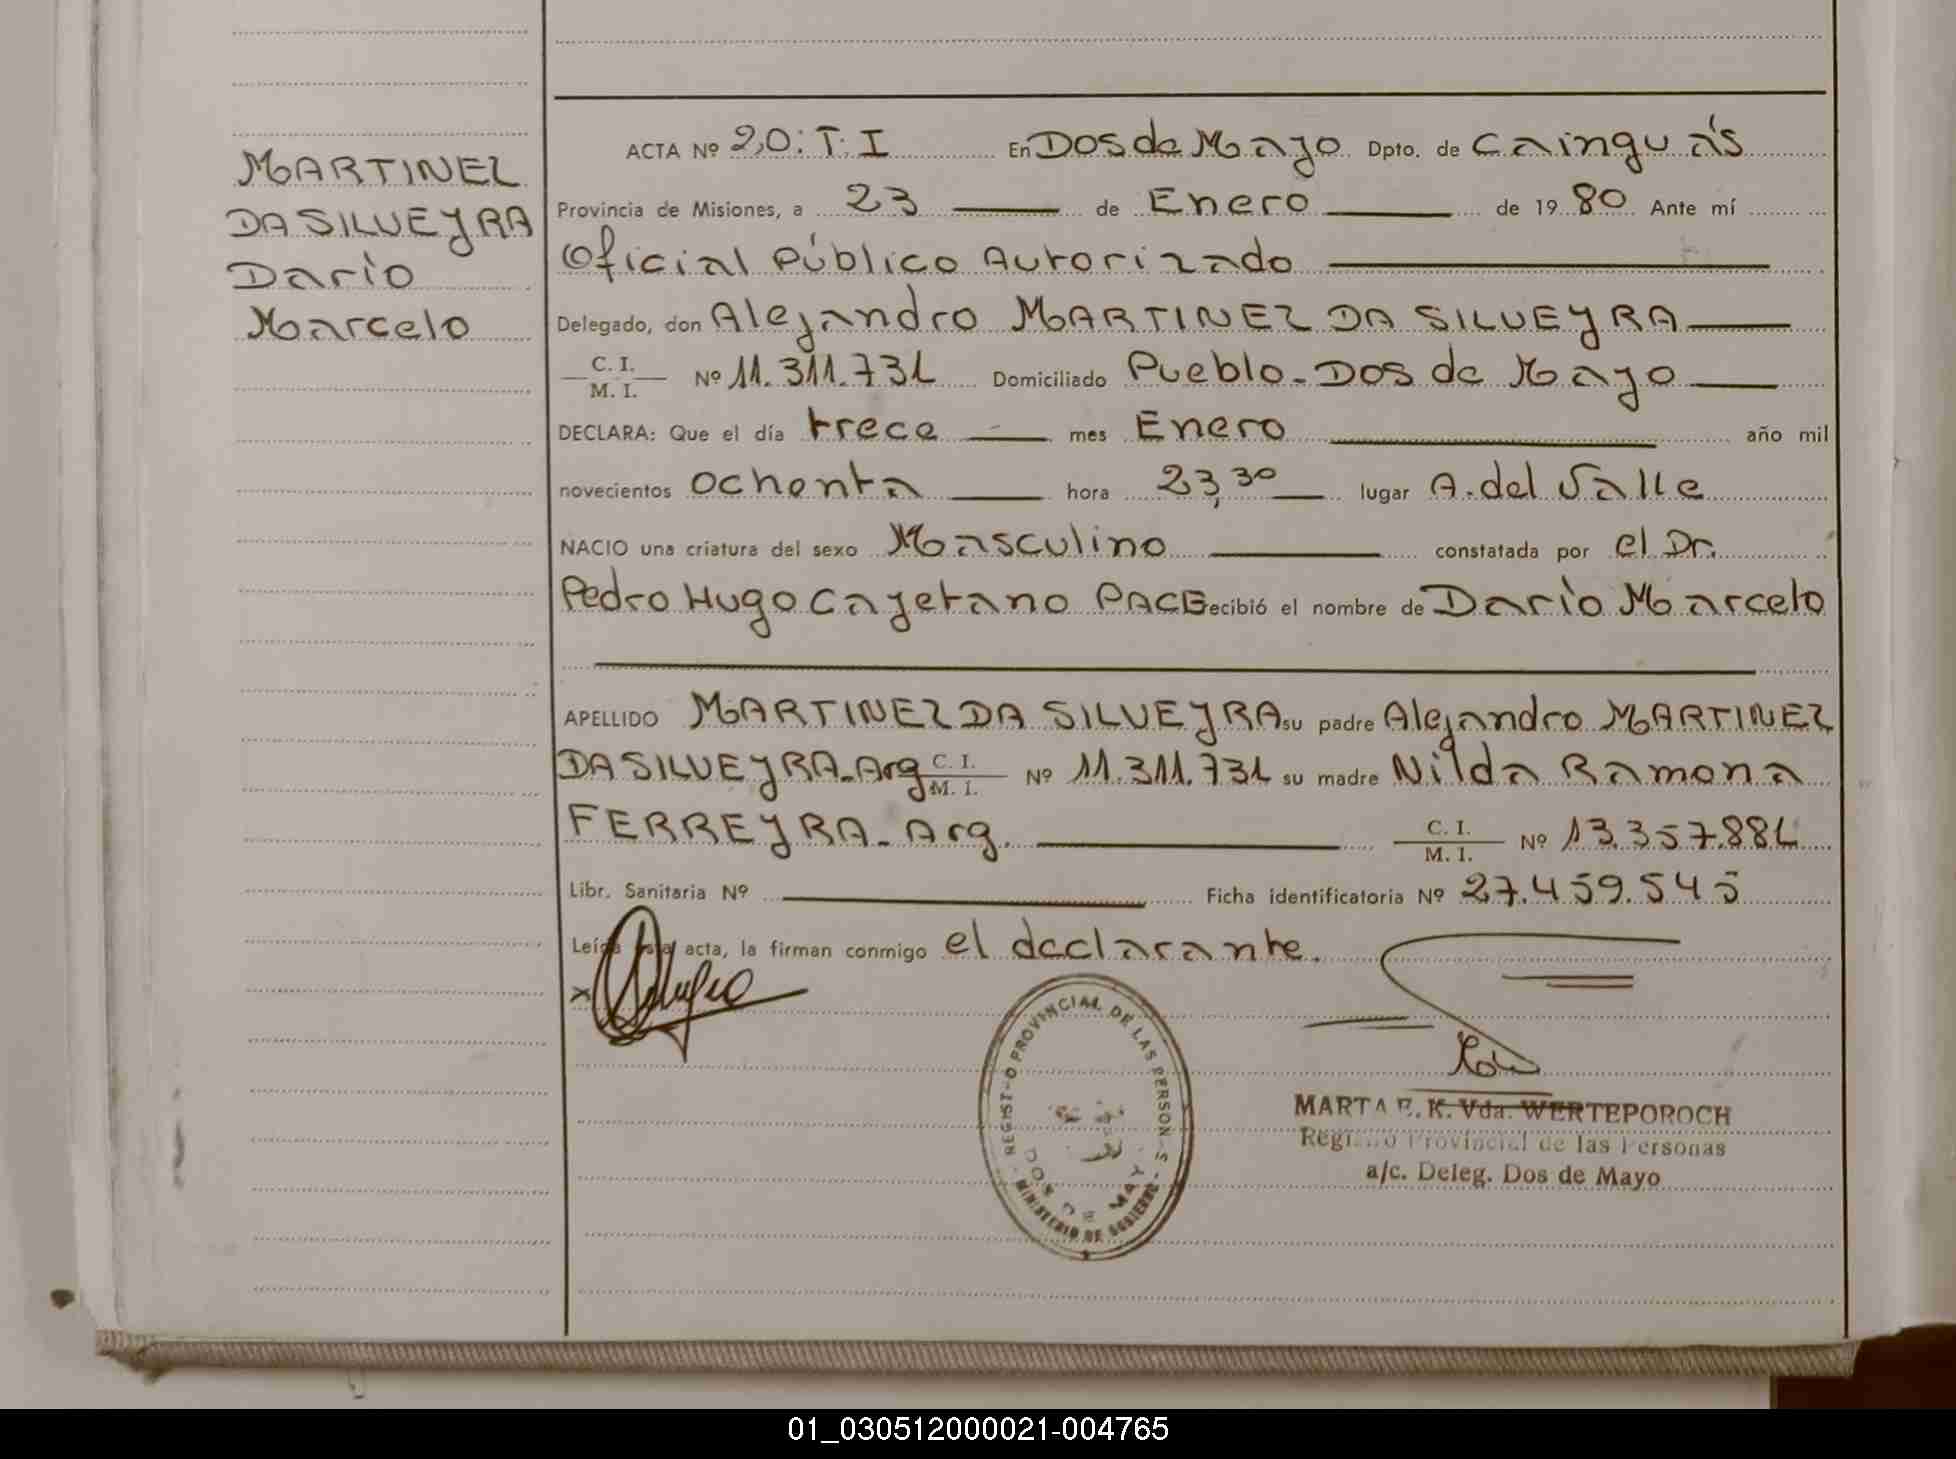 MARTINEZ
DA SILVEYRA
Darío
Marcelo
ACTA Nº 20: T: I En Dos de Mayo Dpto. de Cainguás
Provincia de Misiones, a 23 de Enero de 1980 Ante mí
Oficial Público Autorizado
Delegado, don Alejandro MARTINEZ DA SILVEYRA
C. I.
M. I. Nº 11.311.731 Domiciliado Pueblo - Dos de Mayo
DECLARA: Que el día trece mes Enero año mil
novecientos ochenta hora 23,30 lugar A. del Valle
NACIO una criatura del sexo Masculino constatada por el Dr.
Pedro Hugo Cayetano PACE recibió el nombre de Darío Marcelo
APELLIDO MARTINEZ DA SILVEYRA su padre Alejandro MARTINEZ
DA SILVEYRA - Arg C. I. M. I. Nº 11.311.731 su madre Nilda Ramona
FERREYRA - Arg. C. I. M. I. Nº 13.357.881
Libr. Sanitaria Nº Ficha identificatoria Nº 27.459.545
Leída esta acta, la firman conmigo el declarante.
REGISTRO PROVINCIAL DE LAS PERSONAS
DOS DE MAYO
MINISTERIO DE GOBIERNO
MARTA E. K. Vda. WERTEPOROCH
Registro Provincial de las Personas
a/c. Deleg. Dos de Mayo
01_030512000021-004765